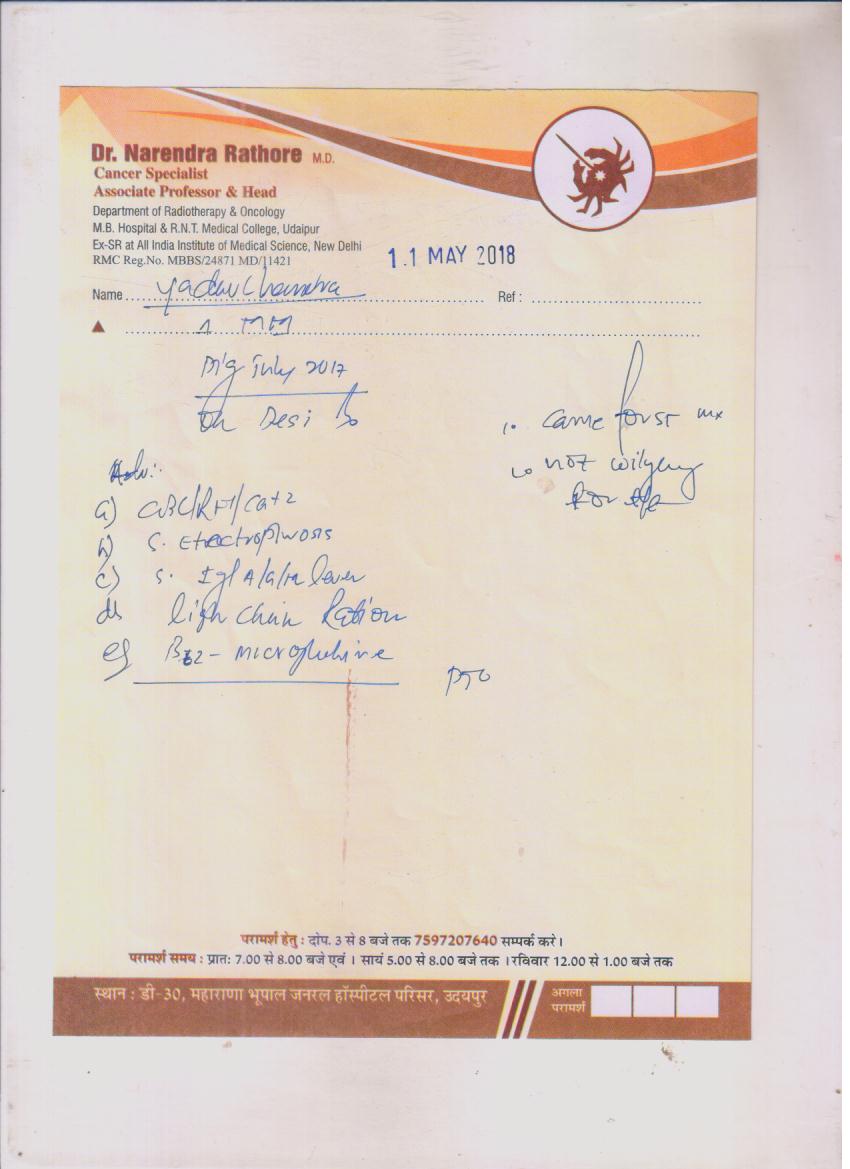 Dr. Narendra Rathore M.D.
Cancer Specialist
Associate Professor & Head
Department of Radiotherapy & Oncology
M.B. Hospital & R.N.T. Medical College, Udaipur
Ex-SR at All India Institute of Medical Science, New Delhi
RMC Reg.No. MBBS/24871 MD/11421
1 1 MAY 2018
Name Yadav Chandra Ref :
MM
Dig July 2017
On Desi
came for
not
for
Adv:-
a) CBC/RFT/Ca+2
b) S. Electrophrosis
c) S. IgA/G/M lever
d) ligh Chain Ration
e) B2 - microglubine
PTO
परामर्श हेतु : दोप. 3 से 8 बजे तक 7597207640 सम्पर्क करे।
परामर्श समय : प्रात: 7.00 से 8.00 बजे एवं । सायं 5.00 से 8.00 बजे तक । रविवार 12.00 से 1.00 बजे तक
स्थान : डी-30, महाराणा भूपाल जनरल हॉस्पीटल परिसर, उदयपुर
अगला
परामर्श